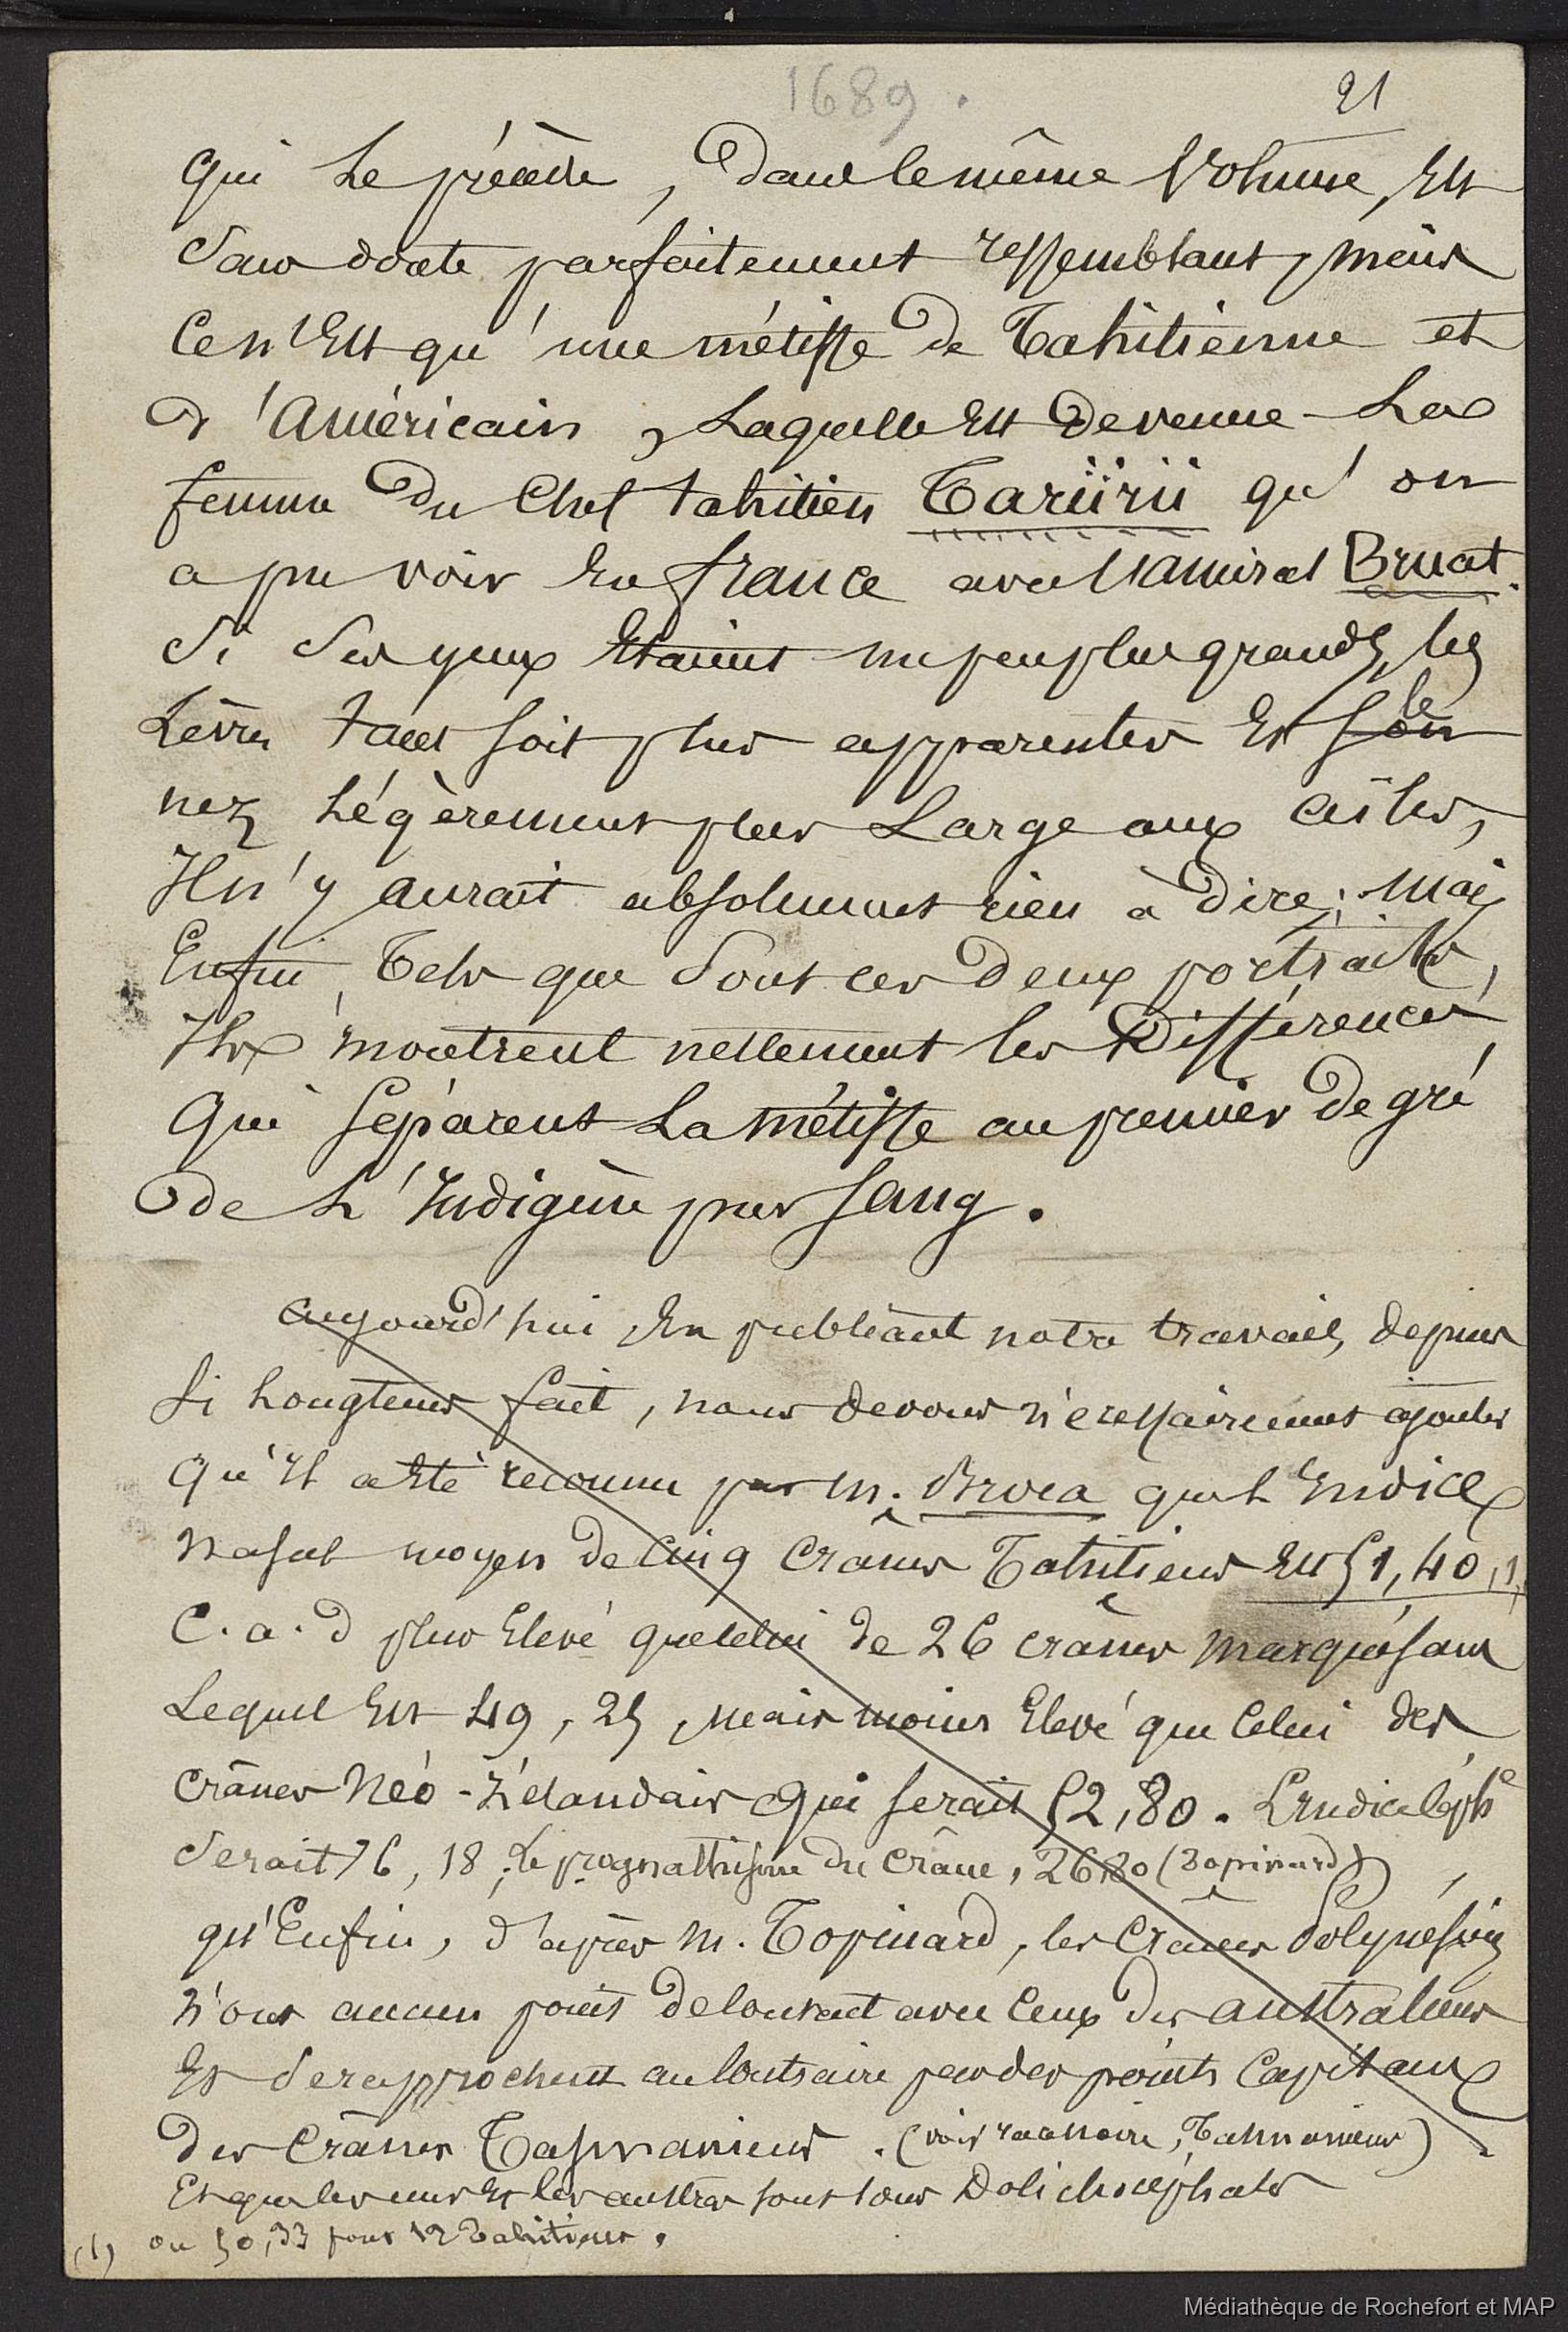 1689.
21
qui le précède, dans le même Volume, Est
Sans doute parfaitement ressemblant, mais
Ce n'Est qu'une métisse de Tahitienne et
d'Américain, Laquelle Est devenue La
femme du Chef tahitien Tariirii qu'on
a pu voir En france avec l'amiral Bruat.
Si Ses yeux Etaient un peu plus grands, les
Lèvres tant soit plus apparentes Et son le
nez Légèrement plus Large aux ailes,
Il n'y aurait absolument rien à dire; mais
Enfin, Tels que Sont ces deux portraits,
Ils montrent nettement les Différences
Qui Séparent La métisse au premier degré
de L'Indigène pur sang.
aujourd'hui, En publiant notre travail, depuis
Si Longtems fait, nous devons nécessairement ajouter
Qu'il a Eté reconnu par M. Broca que L'Indice
Nasal moyen de Cinq Crânes Tahitiens Est 51,40,1,
C.a.d plus Elevé que celui de 26 crânes marquésans
Lequel Est 49,25, mais moins Elevé que Celui des
crânes Néo-Zélandais Qui serait 52,80. L'Indice céphe
Serait 76,18; Le prognathisme du Crâne, 26 80 (Topinard)
qu'Enfin, d'après M. Topinard, les Crânes Polynésiens
n'ont aucun point de Contact avec Ceux des australiens
Et Se rapprochent au Contraire par des points Capitaux
des Crânes Tasmaniens. (voir race noire, Tasmaniens)
Et que les uns Et les autres sont tous Dolichocéphales
(1) ou 50,33 pour 12 Tahitiens.
Médiathèque de Rochefort et MAP